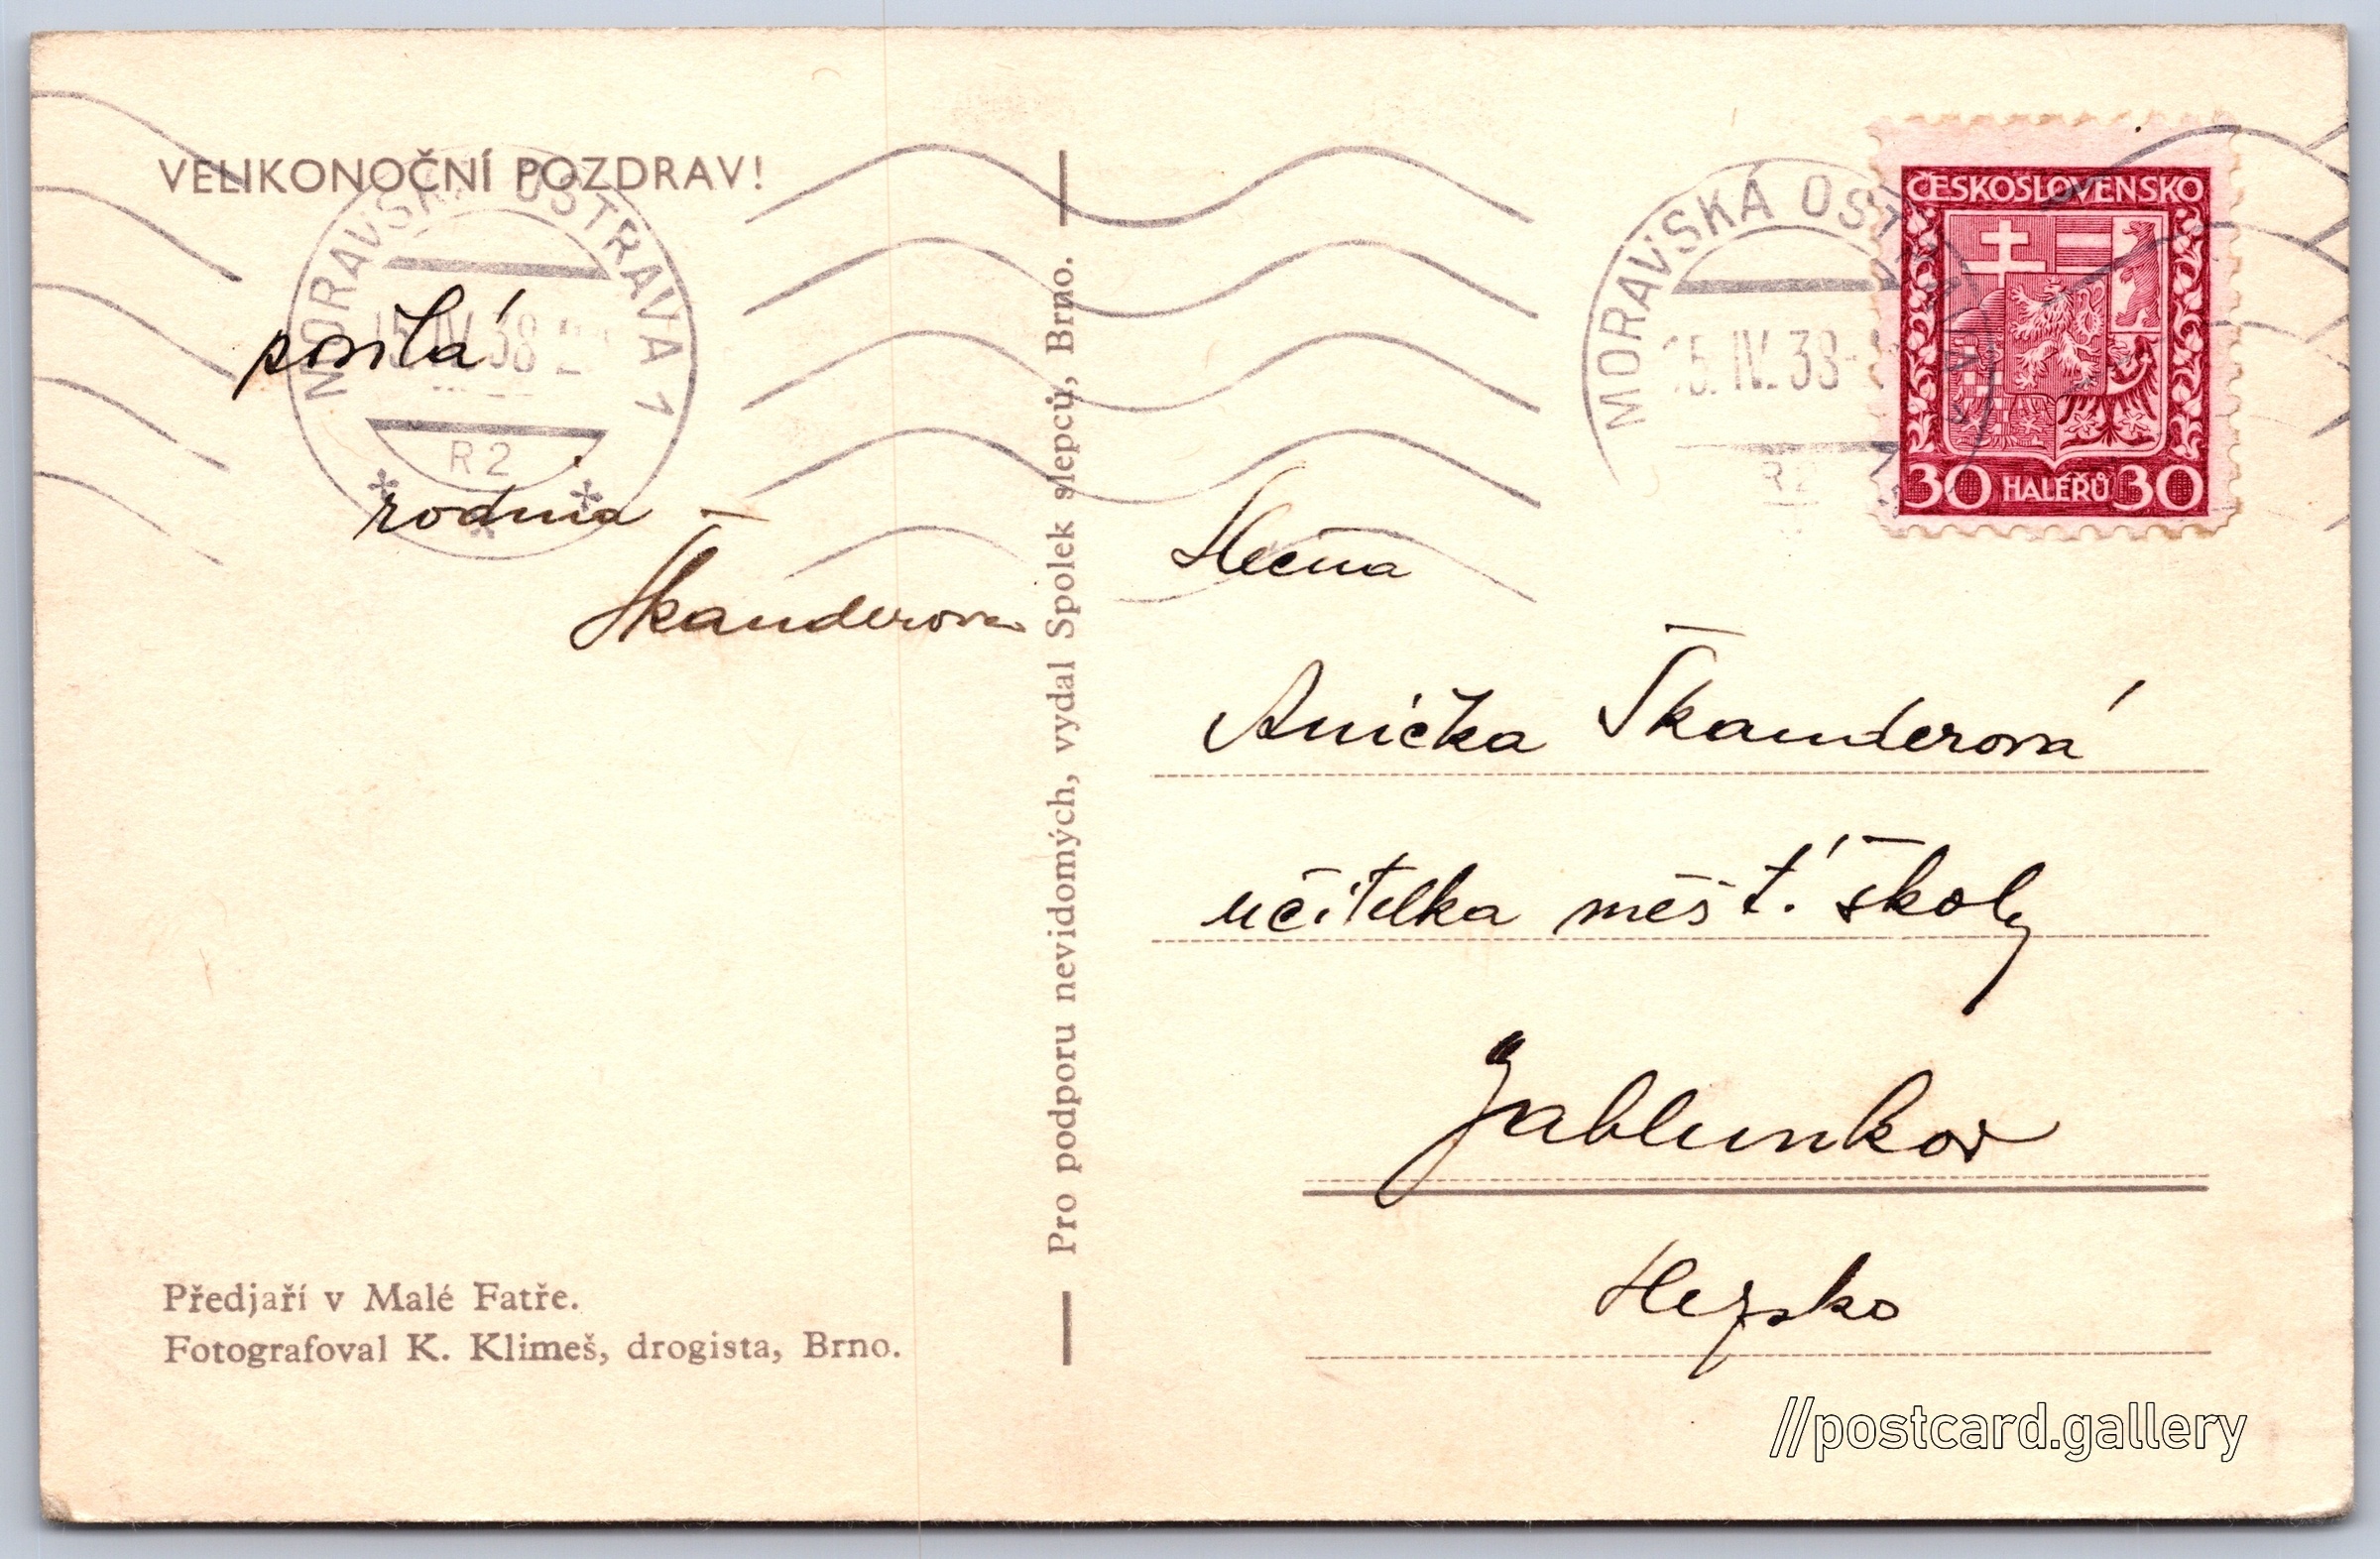 VELIKONOČNÍ POZDRAV!
posílá
rodina
Škanderova
Předjaří v Malé Fatře.
Fotografoval K. Klimeš, drogista, Brno.
Pro podporu nevidomých, vydal Spolek slepců, Brno.
MORAVSKÁ OSTRAVA 1
15.IV.38
R2
MORAVSKÁ OSTRAVA 1
15.IV.38
R2
ČESKOSLOVENSKO
30 HALÉŘŮ 30
Slečna
Anička Škanderová
učitelka měšť. školy
Jablunkov
Slezsko
//postcard.gallery